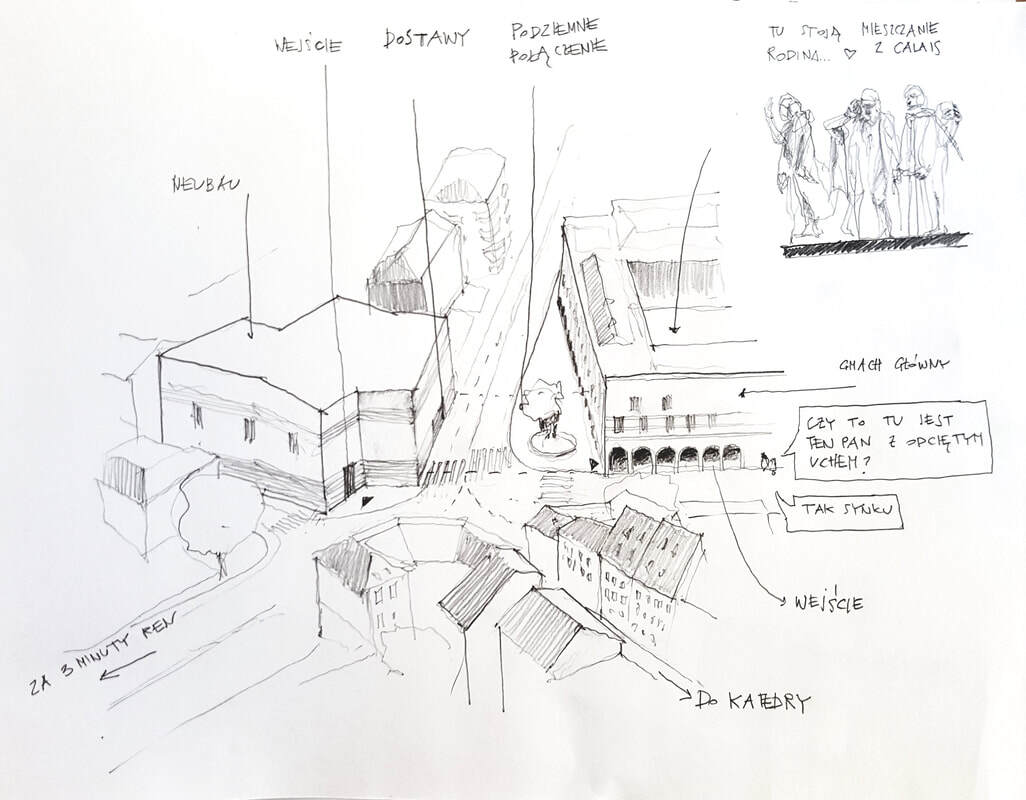 WEJŚCIE
DOSTAWY
PODZIEMNE
POŁĄCZENIE
TU STOJĄ MIESZCZANIE
RODINA... ♡ Z CALAIS
NEUBAU
GMACH GŁÓWNY
CZY TO TU JEST
TEN PAN Z ODCIĘTYM
UCHEM?
TAK SYNKU
WEJŚCIE
ZA 3 MINUTY REN
DO KATEDRY